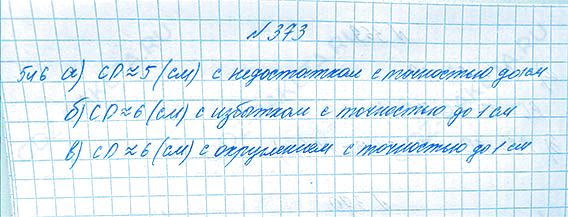 № 373
5и6 а) CD ≈ 5 (см) с недостатком с точностью до 1 см
б) CD ≈ 6 (см) с избытком с точностью до 1 см
в) CD ≈ 6 (см) с округлением с точностью до 1 см